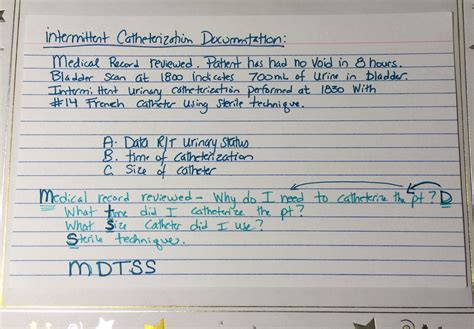 intermittent Catheterization Documentation:
Medical Record reviewed. Patient has had no Void in 8 hours.
Bladder Scan at 1800 indicates 700mL of Urine in bladder.
Intermittent Urinary catheterization performed at 1830 With
#14 French Catheter Using Sterile technique.
A. Data R/T Urinary Status
B. time of Catheterization
C. Size of catheter
Medical record reviewed - Why do I need to catheterize the pt? D
What time did I catheterize the pt?
What Size Catheter did I use?
Sterile technique.
MDTSS